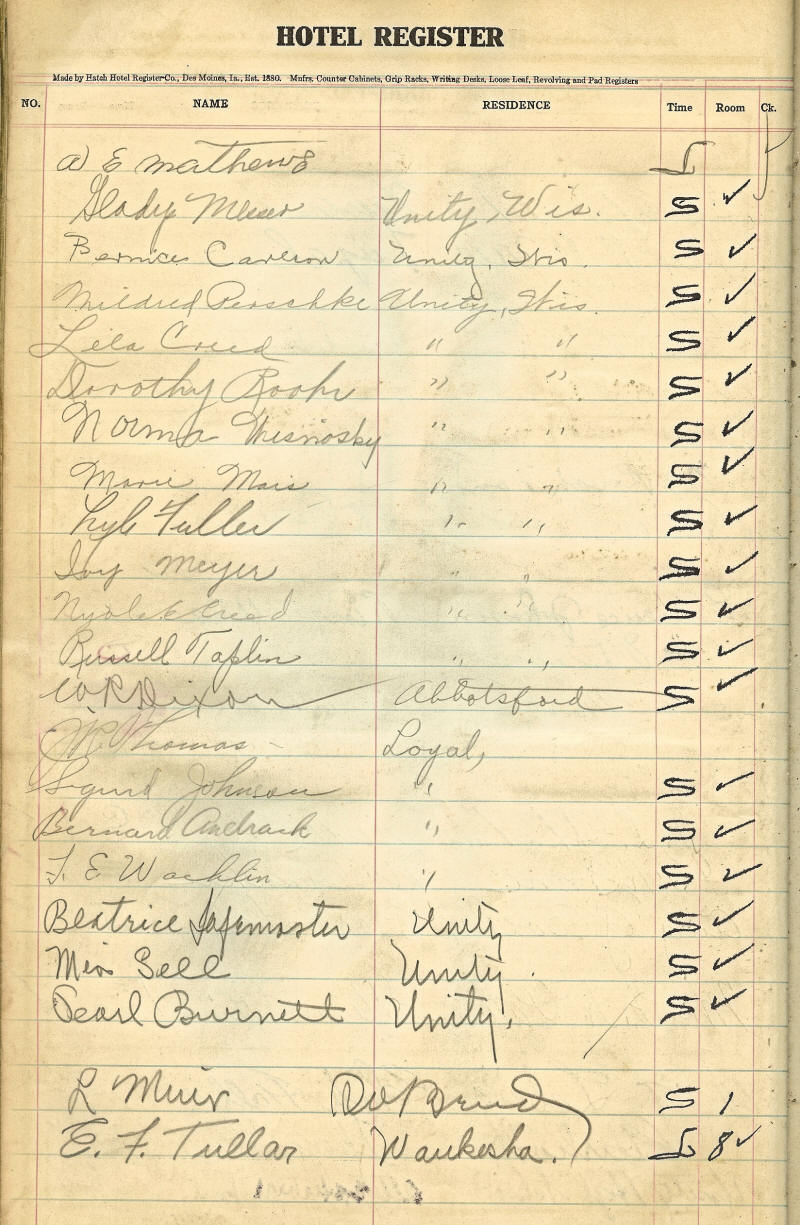 HOTEL REGISTER
Made by Hatch Hotel Register Co., Des Moines, Ia., Est. 1880. Mnfrs. Counter Cabinets, Grip Racks, Writing Desks, Loose Leaf, Revolving and Pad Registers
NO. NAME RESIDENCE Time Room Ck.
A E Mathews L
Gladys Messer Unity, Wis. S ✓
Bernice Carlson Unity, Wis. S ✓
Mildred Perschke Unity, Wis. S ✓
Lela Creed " " S ✓
Dorothy " " S ✓
Norma " " S ✓
Marie Mais " " S ✓
Lyle Fuller " " S ✓
Ivy Meyer " " S ✓
Creed " " S ✓
Russell Taplin " " S ✓
W R Dixon Abbotsford S ✓
Thomas Loyal,
Sigurd Johnson " S ✓
Bernard Andrack " S ✓
" S ✓
Beatrice Unity S ✓
Miss Sell Unity S ✓
Pearl Burnett Unity, S ✓
L Muir S 1
E. F. Tullar Waukesha. L 8 ✓